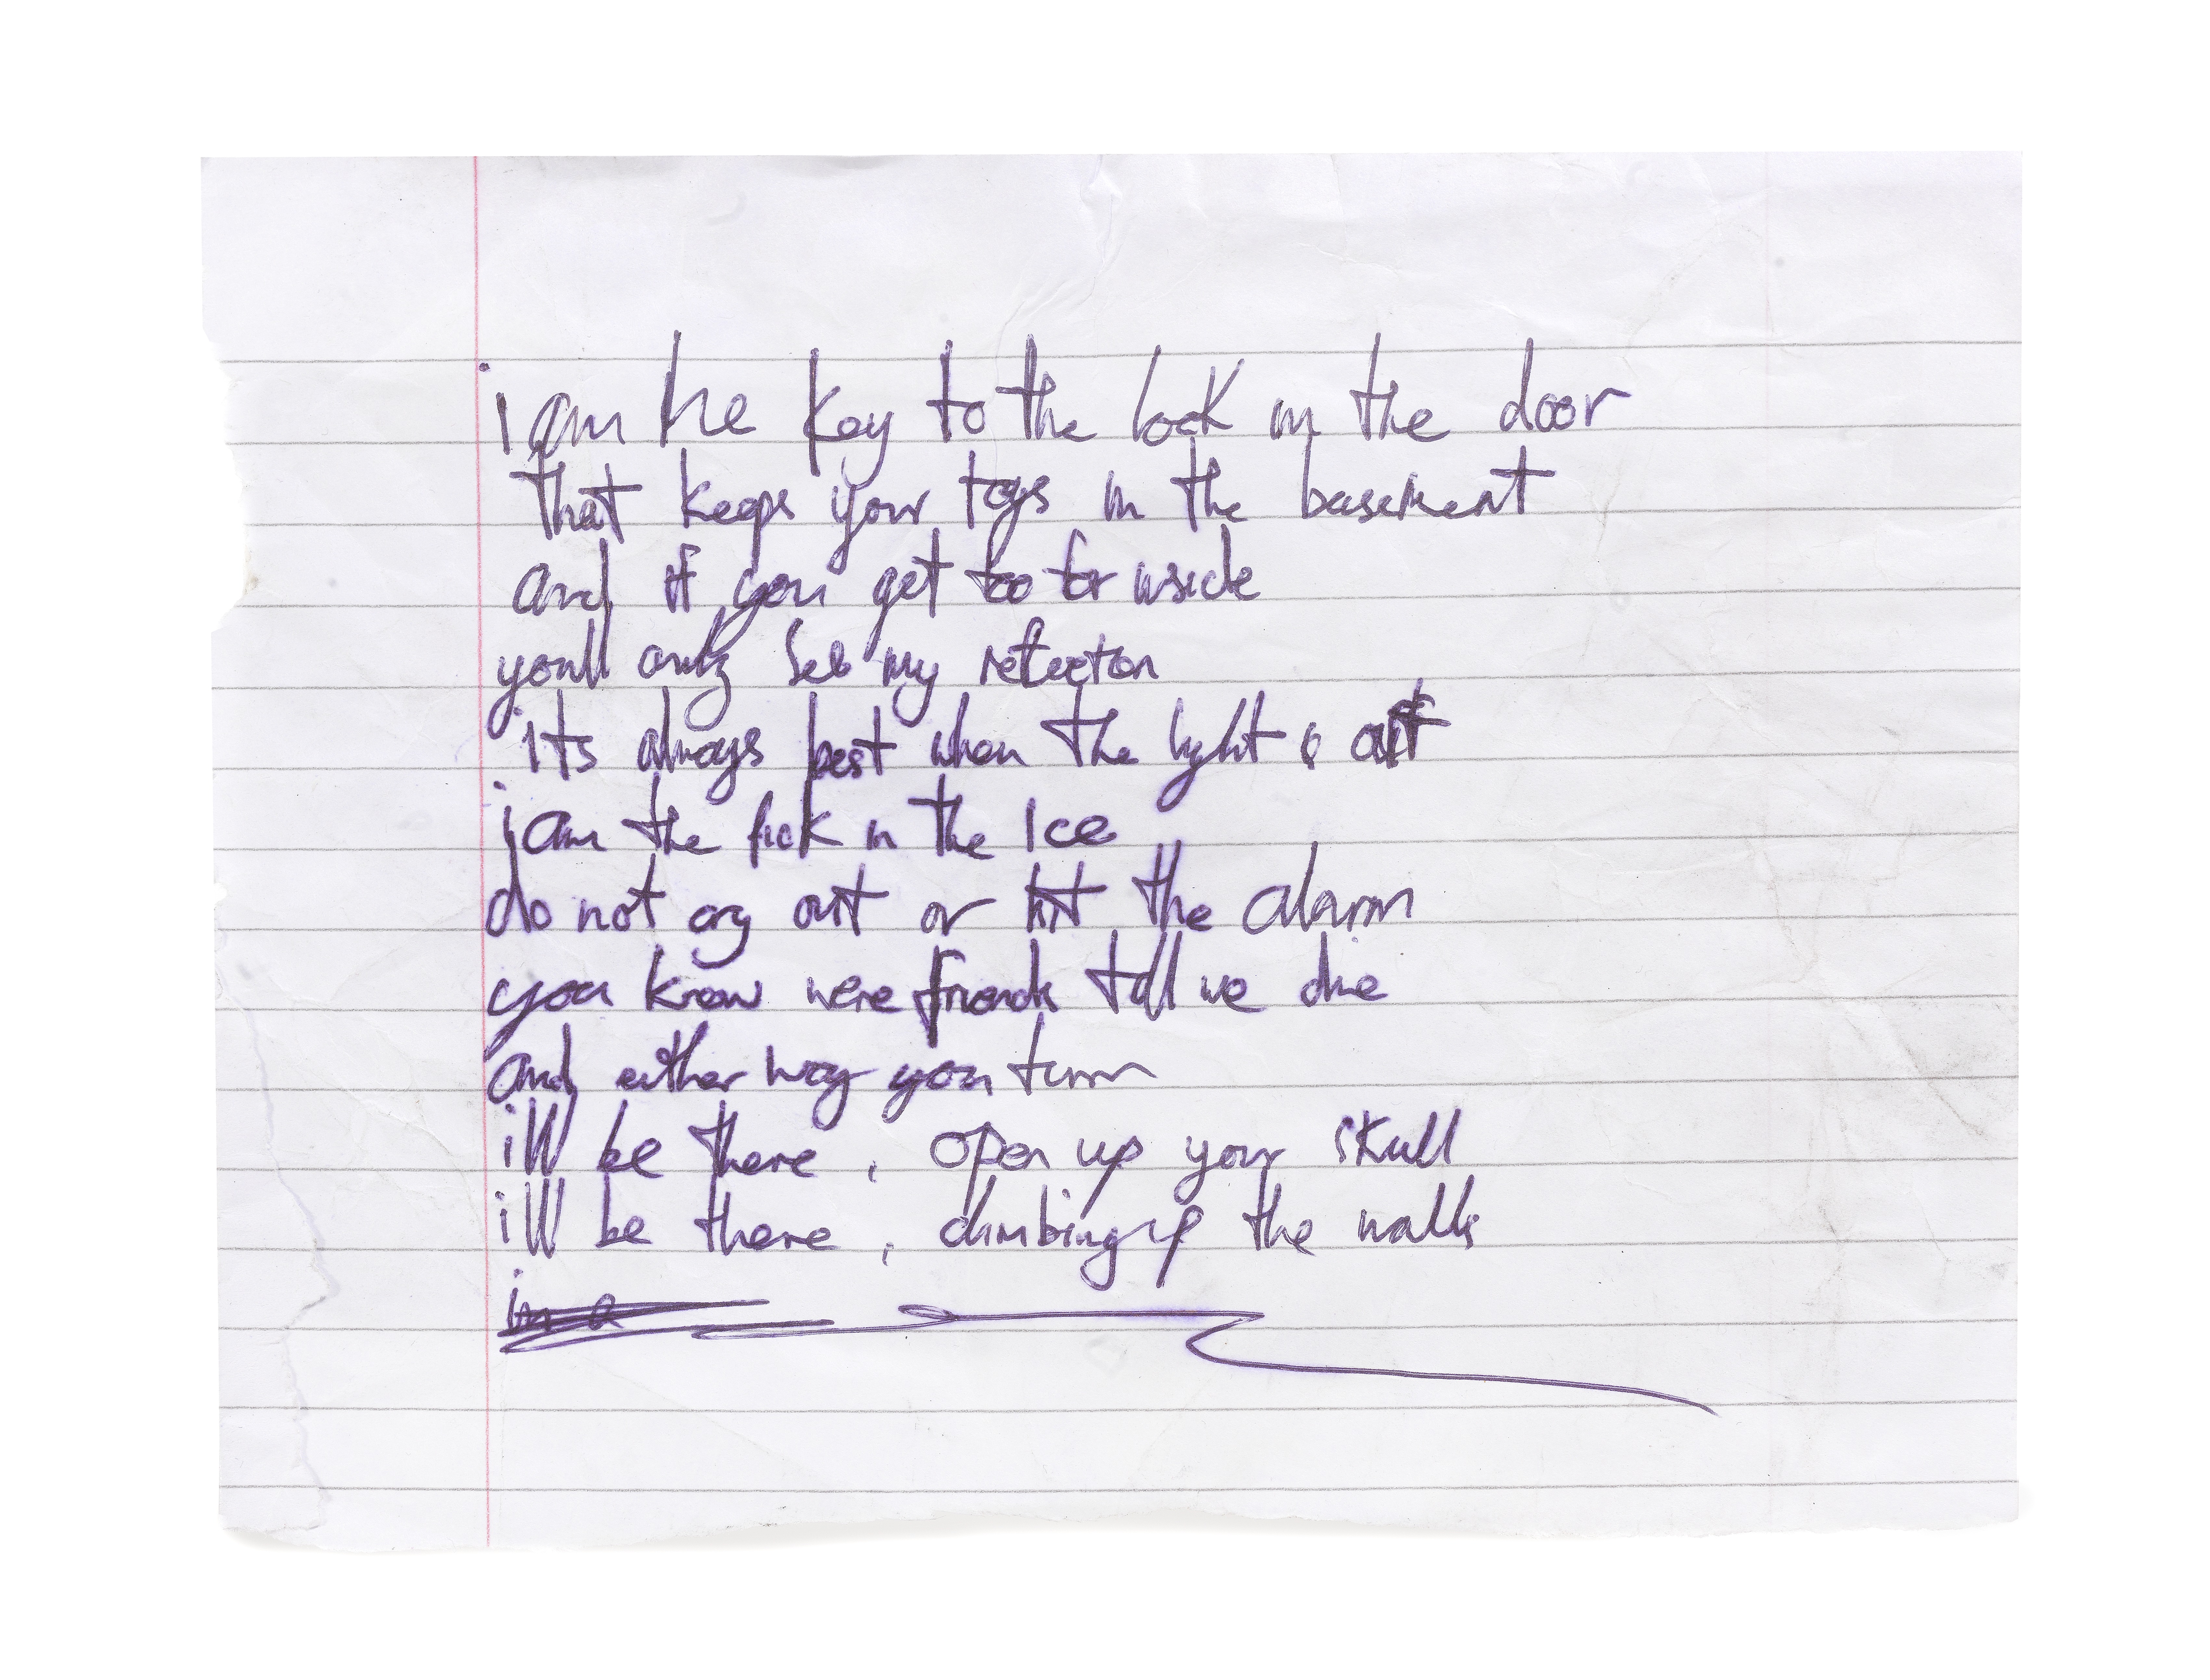 i am the key to the lock in the door
that keeps your toys in the basement
and if you get too far inside
youll only see my reflection
its always best when the light is out
i am the pick in the ice
do not cry out or hit the alarm
you know were friends till we die
and either way you turn
ill be there , open up your skull
ill be there , climbing up the walls
im a